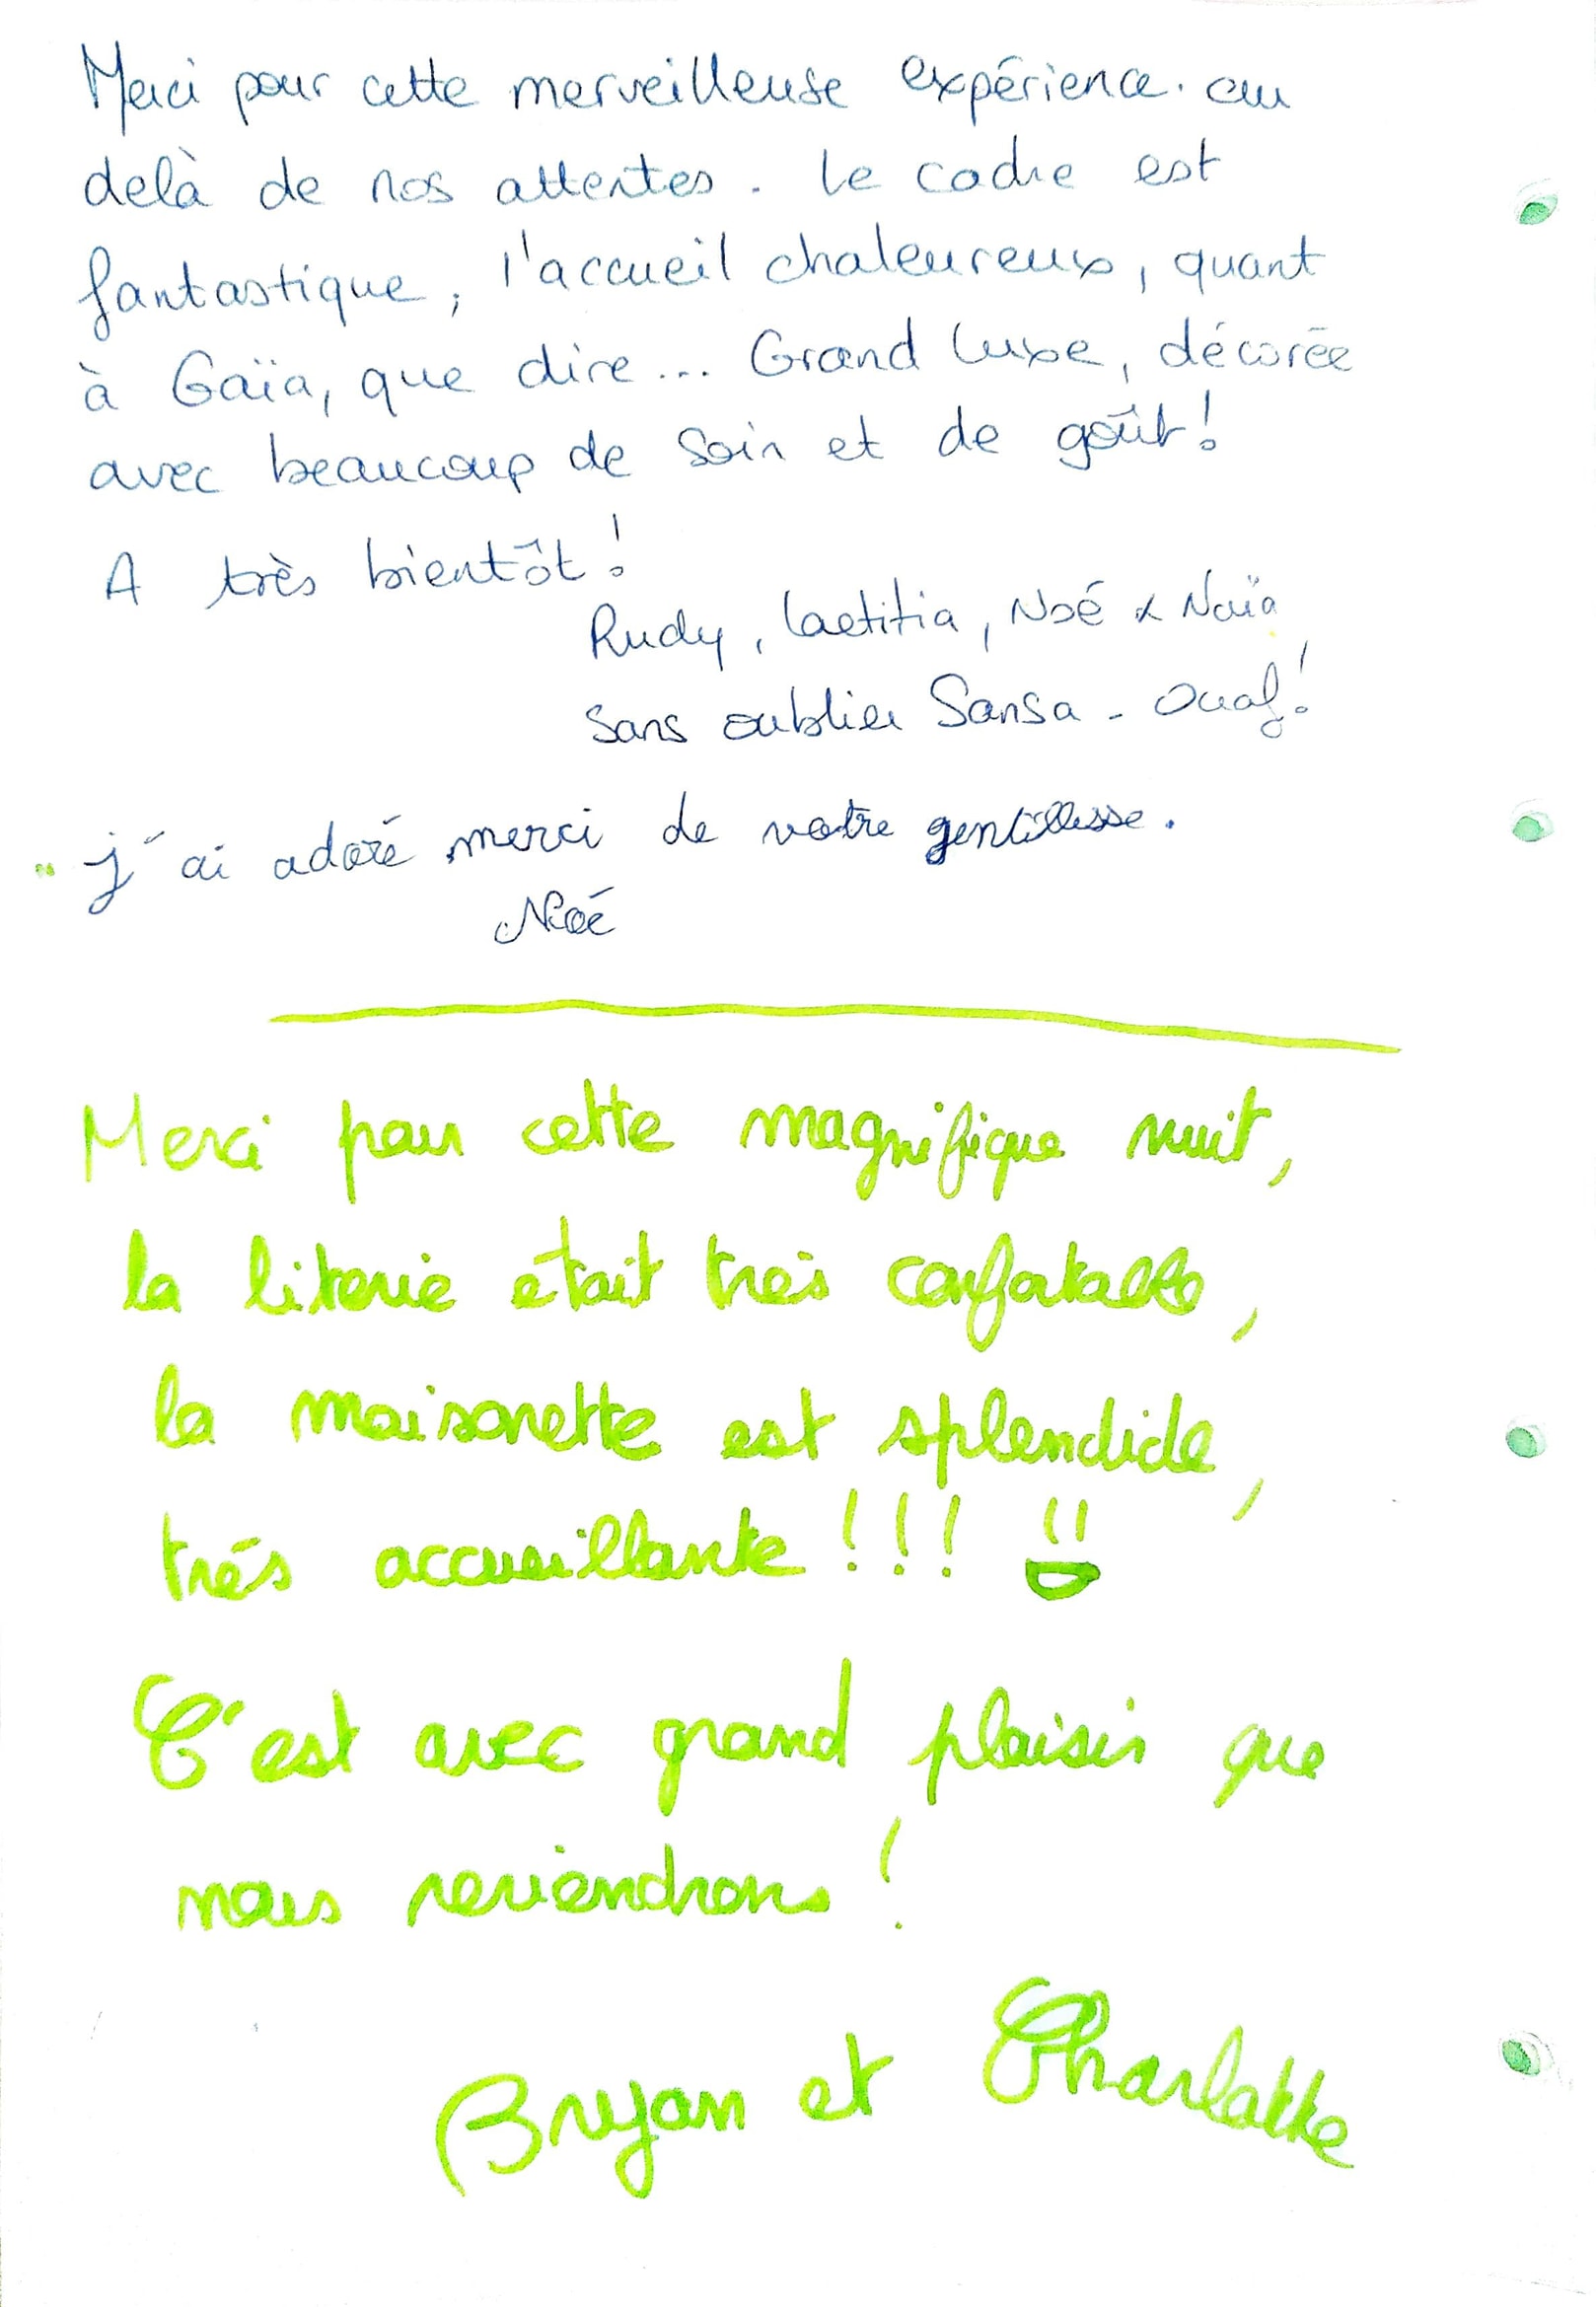 Merci pour cette merveilleuse expérience. au
delà de nos attentes. Le cadre est
fantastique, l'accueil chaleureux, quant
à Gaïa, que dire... Grand luxe, décorée
avec beaucoup de soin et de goût!
A très bientôt!
Rudy, Laetitia, Noé & Naïa
sans oublier Sansa - Ouaf!
j'ai adoré merci de votre gentillesse.
Noé
Merci pour cette magnifique nuit,
la literie était très confortable,
la maisonette est splendide,
trés accueillante!!!
C'est avec grand plaisir que
nous reviendrons!
Bryan et Charlotte